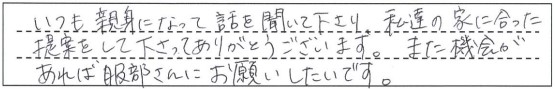 いつも親身になって話を聞いて下さり、私達の家に合った
提案をして下さってありがとうございます。また機会が
あれば服部さんにお願いしたいです。